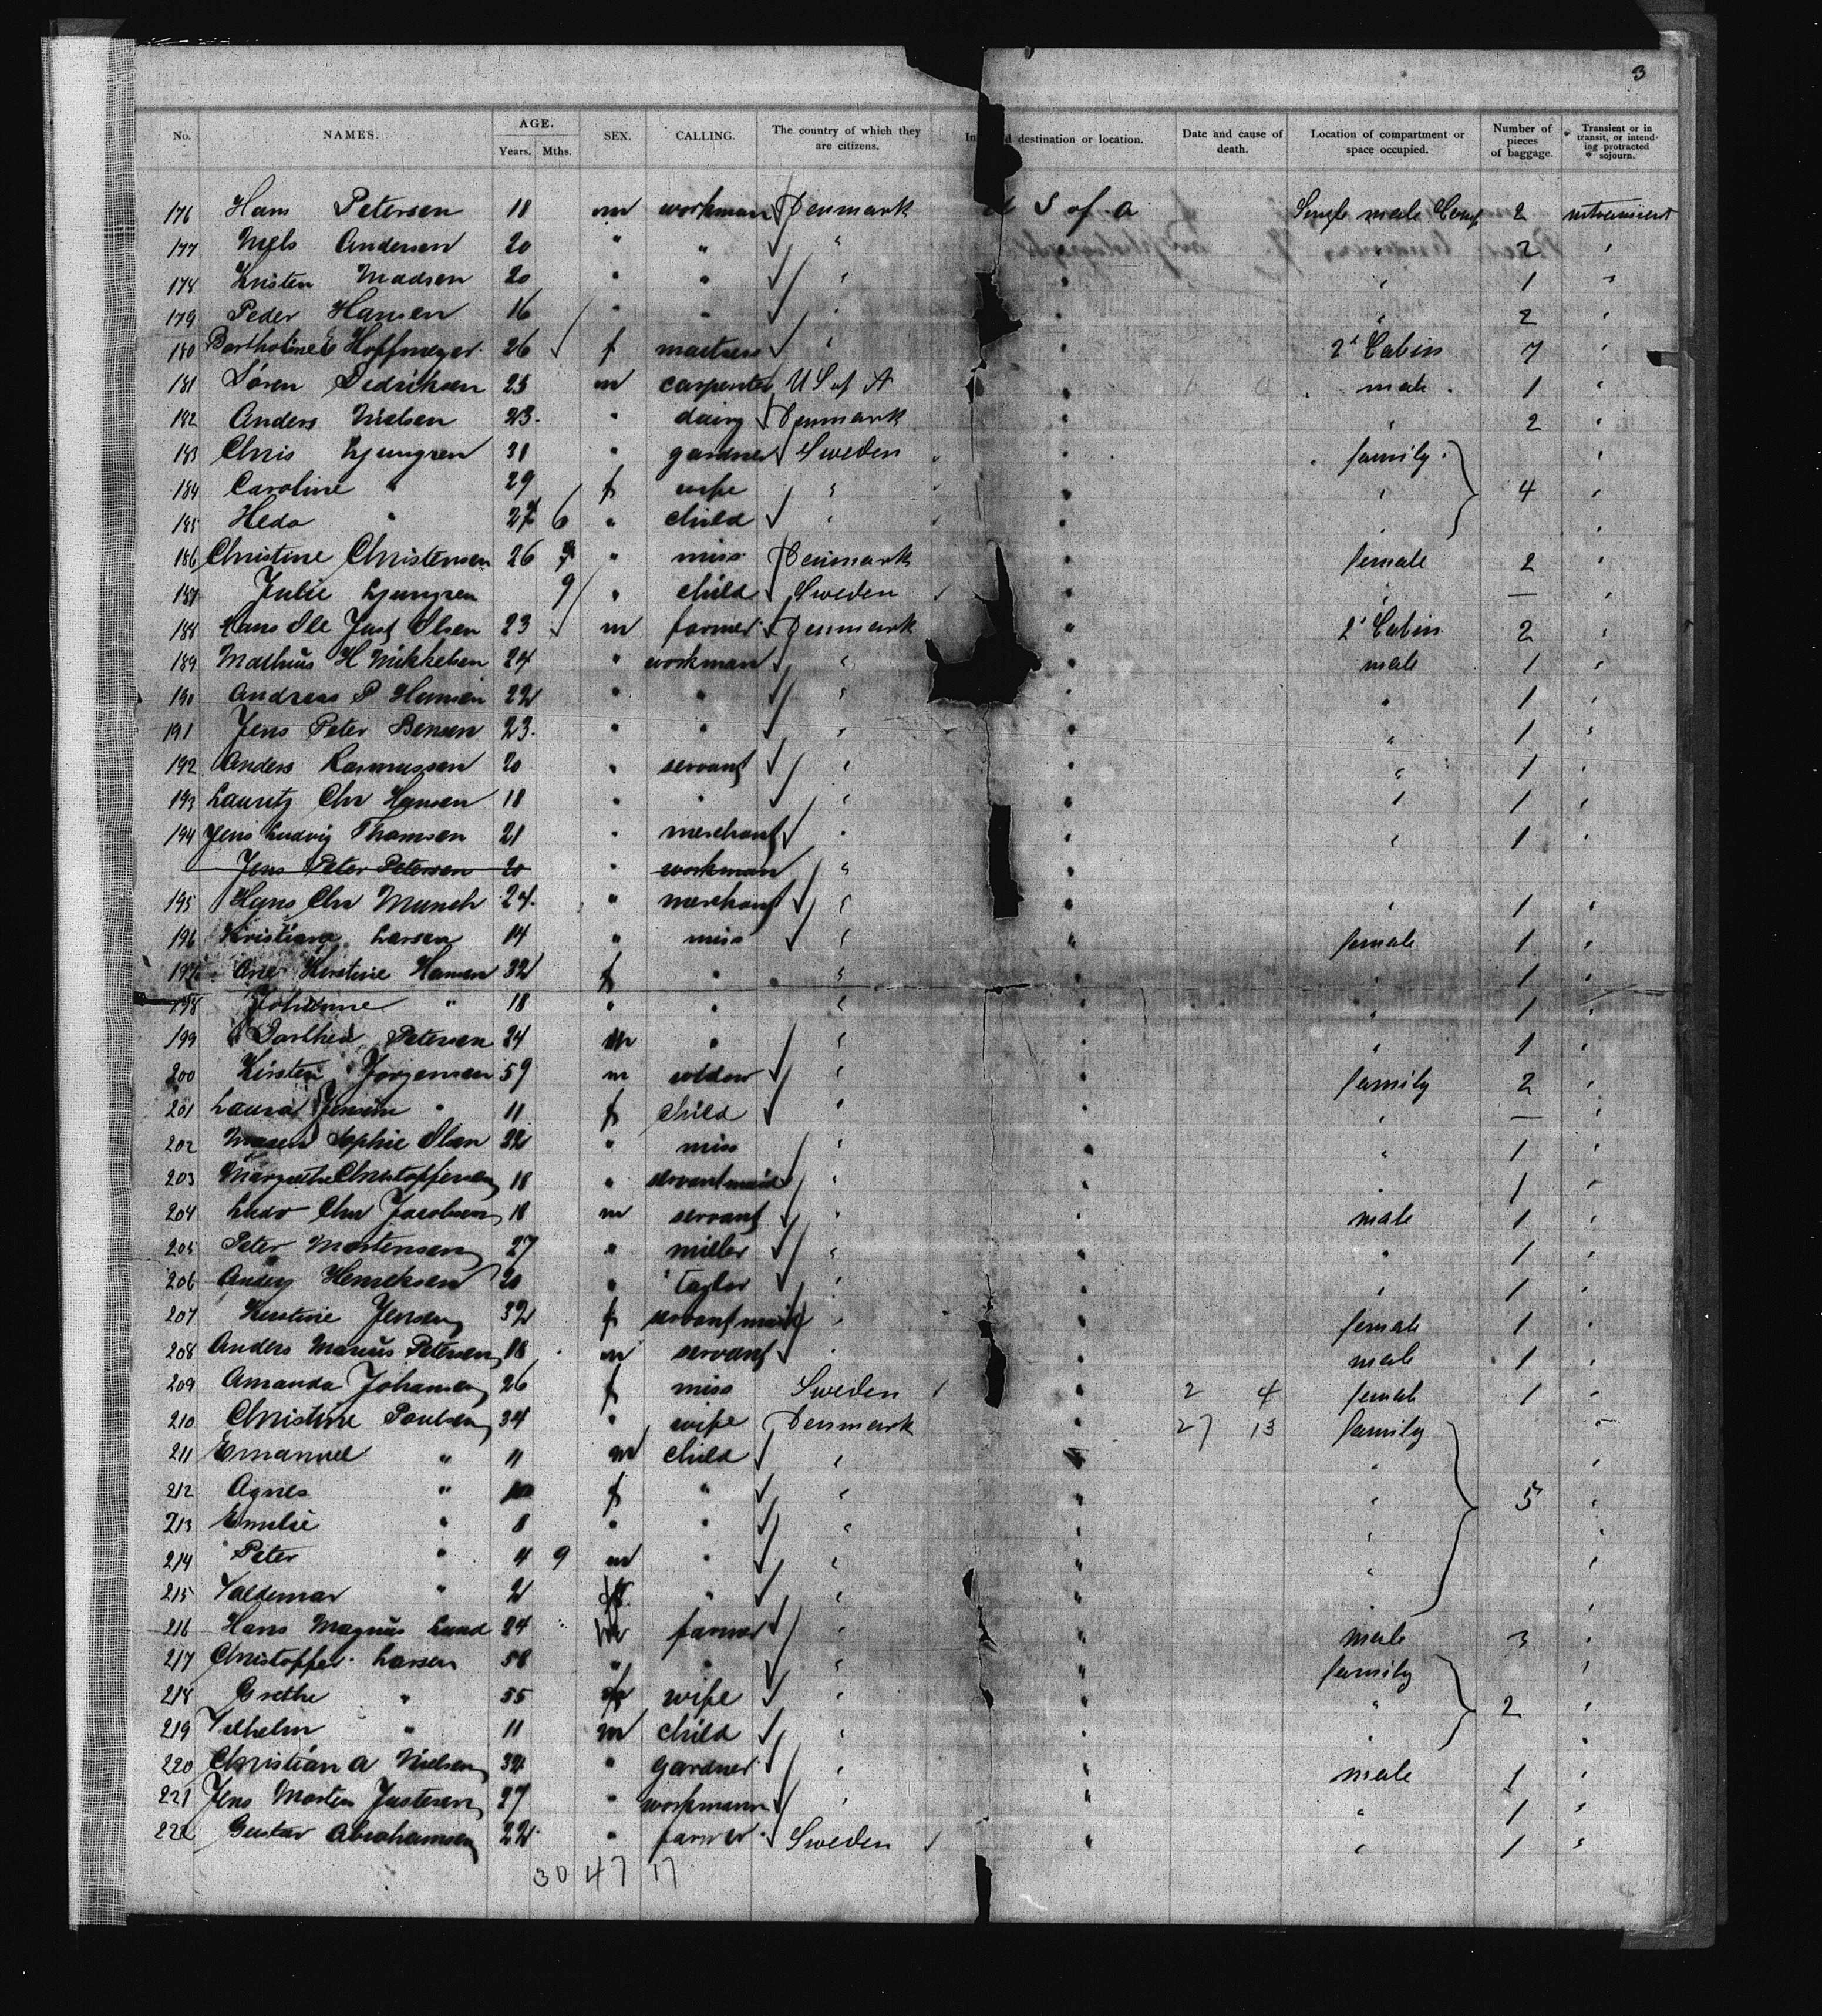 3
No. NAMES. AGE. Years. Mths. SEX. CALLING. The country of which they are citizens. destination or location. Date and cause of death. Location of compartment or space occupied. Number of pieces of baggage. Transient or in transit, or intending protracted sojourn.
176 Hans Petersen 18 m workman Denmark U S of a Single male Comp 2
177 Niels Andersen 20 " " " 2 "
178 Kristen Madsen 20 " " " " " 1 "
179 Peder Hansen 16 " " " " " 2 "
180 Hoffmeyer 26 f " " 2' Cabin 7 "
181 Sören Dedriksen 25 m carpenter U S of A " male 1 "
182 Anders Nielsen 23 " dairy Denmark " " 2 "
183 Chris Ljungren 31 " gardner Sweden " family "
184 Caroline " 29 f wife " " " 4 "
185 Heda " 6 " child " " " "
186 Christine Christensen 26 " miss Denmark " female 2 "
187 Julie Ljungren 9 " child Sweden " — "
188 Hans Ole Just Olsen 23 m farmer Denmark " 2' Cabin 2 "
189 Mathius H Mikkelsen 24 " workman " " male 1 "
190 Andreas P Hansen 22 " " " " " 1 "
191 Jens Peter Bensen 23 " " " " " 1 "
192 Anders Rasmussen 20 " servant " " " 1 "
193 Lauritz Chr Hansen 18 " " " " " 1 "
194 Jens Ludvig Thomsen 21 " merchant " " " 1 "
Jens Peter Petersen 20 " workman " "
195 Hans Chr Munch 24 " merchant " " " 1 "
196 Kristiane Larsen 14 " miss " " female 1 "
197 Ane Kirstine Hansen 32 f " " " 1 "
198 Johanne " 18 " " " " 1 "
199 Petersen 24 m " " " " 1 "
200 Kirsten Jorgensen 59 m widow " " family 2 "
201 Laura Jensen " 11 f child " " " — "
202 Maren Sophie Olsen 22 " miss " " " 1 "
203 Margrethe Christoffersen 18 " servantmaid " " " 1 "
204 Ludv Chr Jacobsen 18 m servant " " male 1 "
205 Peter Mortensen 27 " miller " " " 1 "
206 Anders Henriksen 20 " taylor " " 1 "
207 Kirstine Jensen 32 f servantmaid " female 1 "
208 Anders Marius Petersen 18 m servant " male 1 "
209 Amanda Johansen 26 f miss Sweden " 2 4 female 1 "
210 Christine Poulsen 34 " wife Denmark " 27 13 family "
211 Emanuel " 11 m child " " " "
212 Agnes " 10 f " " " " 5 "
213 Emilie " 8 " " " " " "
214 Peter " 4 9 m " " " " "
215 Valdemar " 2 " " " " "
216 Hans Magnus Lund 24 m farmer " " male 3 "
217 Christoffer Larsen 58 " " " " family "
218 Grethe " 55 f wife " " " 2 "
219 Vilhelm " 11 m child " " " "
220 Christian A Nielsen 32 " gardner " " male 1 "
221 Jens Morten Justesen 27 " workmann " " " 1 "
222 Gustav Abrahamsen 22 " farmer Sweden " " 1 "
30 47 17